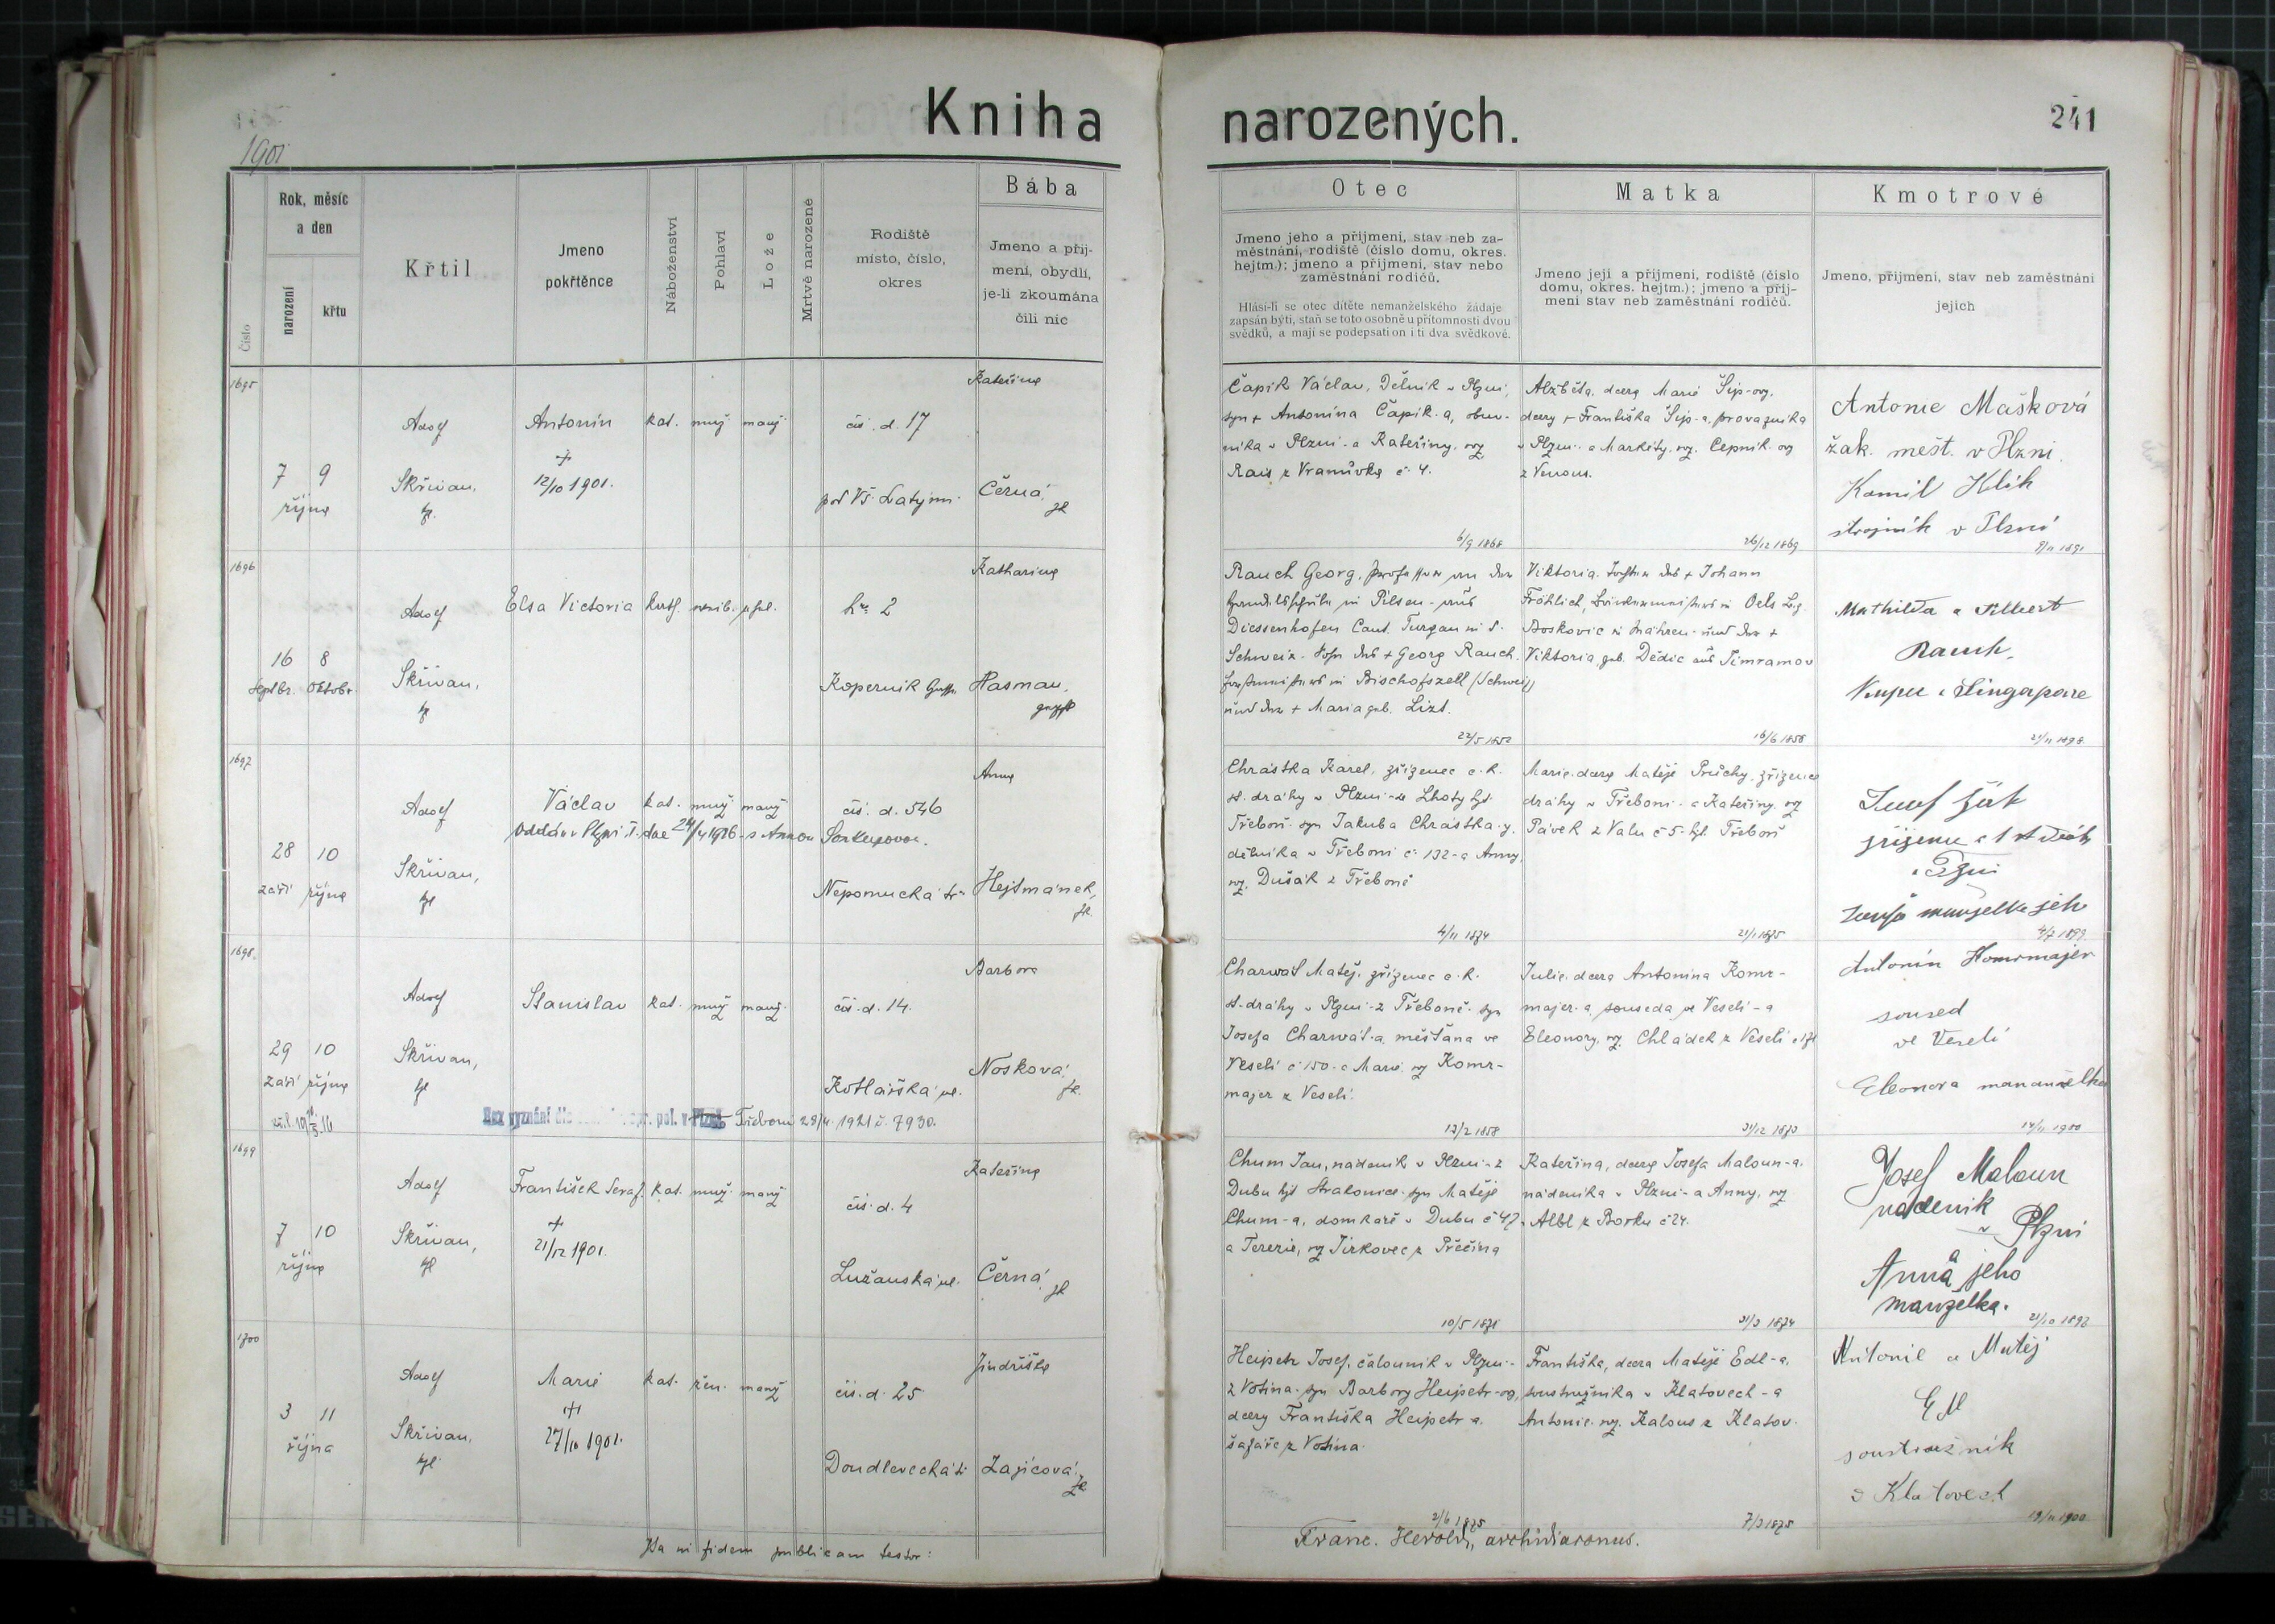 Kniha narozených.
241
1901
Číslo
Rok, měsíc
a den
narození
křtu
Křtil
Jmeno
pokřtěnce
Náboženství
Pohlaví
Lože
Mrtvě narozené
Rodiště
místo, číslo,
okres
Bába
Jmeno a příj-
mení, obydlí,
je-li zkoumána
čili nic
Otec
Jmeno jeho a příjmení, stav neb za-
městnání, rodiště (číslo domu, okres.
hejtm.); jmeno a příjmení, stav nebo
zaměstnání rodičů.
Hlásí-li se otec dítěte nemanželského žádaje
zapsán býti, staň se toto osobně u přítomnosti dvou
svědků, a mají se podepsati on i ti dva svědkové.
Matka
Jmeno její a příjmení, rodiště (číslo
domu, okres. hejtm.); jmeno a příj-
mení stav neb zaměstnání rodičů.
Kmotrové
Jmeno, příjmení, stav neb zaměstnání
jejich
1695
7 9
října
Adolf
Skřivan,
Antonín
+
12/10 1901.
kat. muž. manž.
čís. d. 17
Kateřina
Černá
Čapik Václav, Dělník v Plzni,
syn + Antonína Čapik-a, obuv-
níka v Plzni - a Kateřiny, roz.
Rais z Vranůvka č. 4.
6/9 1868
Alžběta, dcera Marie Šip-ov.
dcery + Františka Šip-a, provazníka
v Plzni - a Markéty, roz. Cepník-ov
26/12 1869
Antonie Mašková
žak. měšt. v Plzni.
Kamil Klik
strojník v Plzni
1696
16 8
Septbr. Oktobr
Adolf
Skřivan,
Elsa Victoria
kath. weib.
No 2
Kopernik
Katharina
Hasman,
Rauch Georg, Professor an der
Handelsschule in Pilsen - aus
Diessenhofen Cant. Turgau in d.
Schweiz - Sohn des + Georg Rauch,
in Bischofszell (Schweiz)
und der + Maria geb. Lizt.
22/5 1852
Viktoria, Tochter des + Johann
Fröhlich, in Oels Bez.
Boskovic in Mähren - und der +
Viktoria, geb. Dědic aus Jimramov
16/6 1858
Mathilda a Albert
Rauch,
Singapore
1697
28 10
září října
Adolf
Skřivan,
Václav
kat. muž manž
Oddán v Plzni dne 24/4 1926 s Annou
čís. d. 546
Nepomucká tř.
Anna
Hejtmánek,
Chrástka Karel, zřízenec c. k.
st. dráhy v Plzni - ze Lhoty hjt.
Třeboň - syn Jakuba Chrástka - y.
dělníka v Třeboni č. 132 - a Anny
roz. Dušák z Třeboně
4/11 1874
Marie, dcera Matěje Průchy, zřízence
dráhy v Třeboni - a Kateřiny, roz
Pávek z Valu č 5 - hjt Třeboň
21/1 1875
Josef Žák
manželka jeho
4/7 1899
1698.
29 10
září října
Adolf
Skřivan,
Stanislav
kat. muž manž.
čís. d. 14.
Kotlářská ul.
Barbora
Nosková
Bez vyznání
pol. v Plzni Třeboni 28/4. 1921 č. 7930.
Charwát Matěj, zřízenec c. k.
st. dráhy v Plzni - z Třeboně - syn
Josefa Charwát-a, měšťana ve
Veselí č 150 - a Marie roz Komr-
majer z Veselí.
13/2 1858
Julie, dcera Antonína Komr-
majer-a souseda ve Veselí - a
Eleonory, roz. Chládek z Veselí
31/12 1873
Antonín Komrmajer
soused
ve Veselí
Eleonora manželka
14/11 1900
1699
7 10
října
Adolf
Skřivan,
František Seraf.
+
21/12 1901.
kat. muž. manž
čís. d. 4
Lužanská ul.
Kateřina
Černá,
Chum Jan, nádeník v Plzni - z
Dubu hjt Strakonice - syn Matěje
Chum-a, domkaře v Dubu č 47,
a Terezie, roz Jirkovec z Přečína
10/5 1871
Kateřina, dcera Josefa Maloun-a,
nádeníka v Plzni - a Anny, roz
Albl z Borku č 24.
31/3 1874
Josef Maloun
nádeník
v Plzni
a
Anna jeho
manželka.
21/10 1892
1700
3 11
října
Adolf
Skřivan,
Marie
+
27/10 1901.
kat. žen. manž
čís. d. 25
Doudlevecká tř
Jindřiška
Zajícová
Hejpetr Josef, čalouník v Plzni -
z Votína - syn Barbory Hejpetr-ov,
dcery Františka Hejpetr-a.
šafáře z Votína.
2/6 1875
Františka, dcera Matěje Edl-a,
soustružníka v Klatovech - a
Antonie, roz. Kalous z Klatov.
7/3 1875
Antonie a Matěj
Edl
soustružník
v Klatovech
19/11 1900
Ita in fidem publicam testor:
Franc. Herold, archidiaconus.